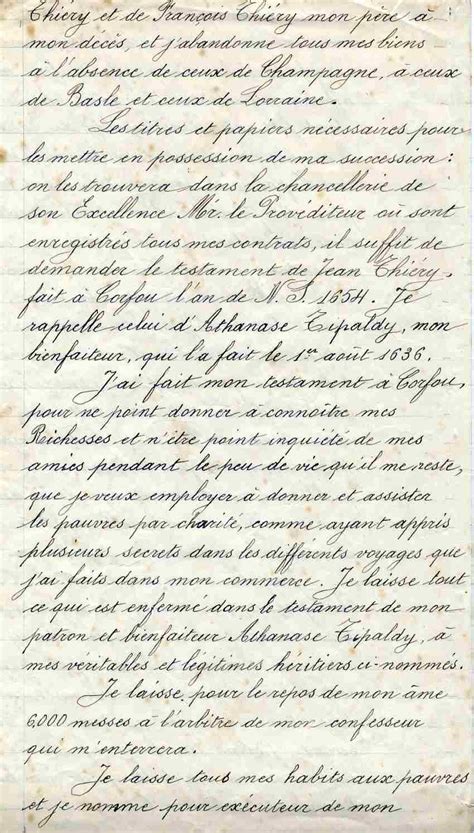 Thiéry et de François Thiéry mon père à
mon décès, et j'abandonne tous mes biens
à l'absence de ceux de Champagne, à ceux
de Basle et ceux de Lorraine.
Les titres et papiers nécessaires pour
les mettre en possession de ma succession :
on les trouvera dans la chancellerie de
son Excellence Mr. le Provediteur où sont
enregistrés tous mes contrats, il suffit de
demander le testament de Jean Thiéry,
fait à Corfou l'an de N. S. 1654. Je
rappelle celui d'Athanase Tipaldy, mon
bienfaiteur, qui l'a fait le 1er août 1636.
J'ai fait mon testament à Corfou,
pour ne point donner à connoître mes
Richesses et n'être point inquiété de mes
amies pendant le peu de vie qu'il me reste,
que je veux employer à donner et assister
les pauvres par charité, comme ayant appris
plusieurs secrets dans les différents voyages que
j'ai faits dans mon commerce. Je laisse tout
ce qui est enfermé dans le testament de mon
patron et bienfaiteur Athanase Tipaldy, à
mes véritables et légitimes héritiers ci-nommés.
Je laisse, pour le repos de mon âme
6,000 messes à l'arbitre de mon confesseur
qui m'enterrera.
Je laisse tous mes habits aux pauvres
et je nomme pour exécuteur de mon